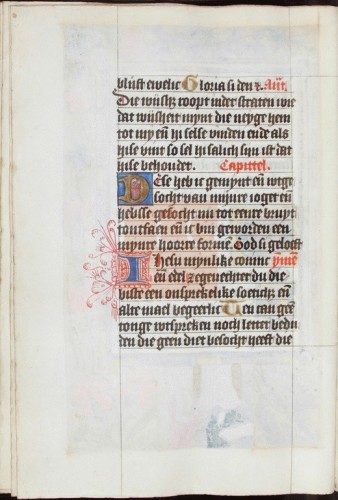 blijft ewelic Gloria si den v. Ant
Die wijsh; roopt inder straten wie
dat wijsheit mynt die neyge hem
tot my en hi selse vinden ende als
hise vint so sel hi salich sijn ist dat
hise behoudet. Capittel.
Dese heb ic gemynt en wtge
socht van mijnre ioget en
hebse gesocht mi tot eenre bruyt
en ic bin geworden een
mynre hoore formē God si geloeft
Ihesu mynlike come ymē
en edel die du die
biste een onsprekelike soetich; en
alte mael begeerlic Ten can gee
tonge wtspreken noch letter bedu
den die geen diet besocht heeft die